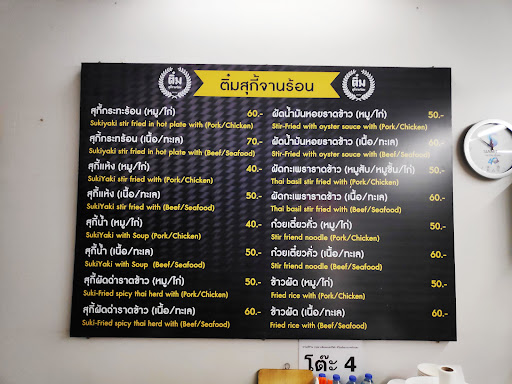 ติ๋ม
ติ๋มสุกี้จานร้อน
ติ๋ม
สุกี้กระทะร้อน (หมู/ไก่) 60.-
Sukiyaki stir fried in hot plate with (Pork/Chicken)
สุกี้กระทะร้อน (เนื้อ/ทะเล) 70.-
Sukiyaki stir fried in hot plate with (Beef/Seafood)
สุกี้แห้ง (หมู/ไก่) 40.-
SukiYaki stir fried with (Pork/Chicken)
สุกี้แห้ง (เนื้อ/ทะเล) 50.-
SukiYaki stir fried with (Beef/Seafood)
สุกี้น้ำ (หมู/ไก่) 40.-
SukiYaki with Soup (Pork/Chicken)
สุกี้น้ำ (เนื้อ/ทะเล) 50.-
SukiYaki with Soup (Beef/Seafood)
สุกี้ผัดฉ่าราดข้าว (หมู/ไก่) 50.-
Suki-Fried spicy thai herd with (Pork/Chicken)
สุกี้ผัดฉ่าราดข้าว (เนื้อ/ทะเล) 60.-
Suki-Fried spicy thai herd with (Beef/Seafood)
ผัดน้ำมันหอยราดข้าว (หมู/ไก่) 50.-
Stir-Fried with oyster sauce with (Pork/Chicken)
ผัดน้ำมันหอยราดข้าว (เนื้อ/ทะเล) 60.-
Stir-Fried with oyster sauce with (Beef/Seafood)
ผัดกะเพราราดข้าว (หมูสับ/หมูชิ้น/ไก่) 50.-
Thai basil stir fried with (Pork/Chicken)
ผัดกะเพราราดข้าว (เนื้อ/ทะเล) 60.-
Thai basil stir fried with (Beef/Seafood)
ก๋วยเตี๋ยวคั่ว (หมู/ไก่) 50.-
Stir friend noodle (Pork/Chicken)
ก๋วยเตี๋ยวคั่ว (เนื้อ/ทะเล) 60.-
Stir friend noodle (Beef/Seafood)
ข้าวผัด (หมู/ไก่) 50.-
Fried rice with (Pork/Chicken)
ข้าวผัด (เนื้อ/ทะเล) 60.-
Fried rice with (Beef/Seafood)
โต๊ะ 4